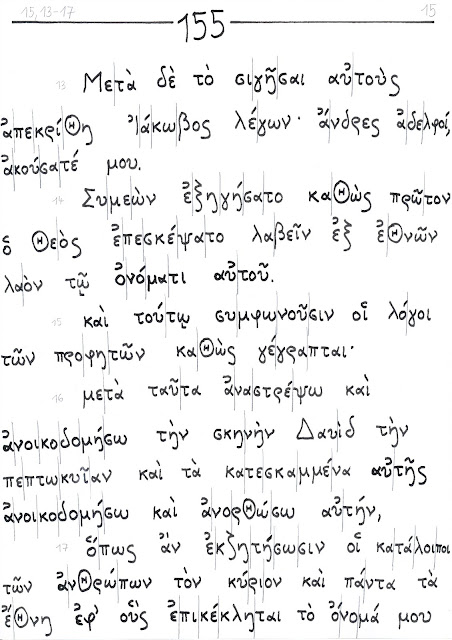 15,13-17 155 15
13 Μετὰ δὲ τὸ σιγῆσαι αὐτοὺς
ἀπεκρίθη Ἰάκωβος λέγων· ἄνδρες ἀδελφοί,
ἀκούσατέ μου.
14 Συμεὼν ἐξηγήσατο καθὼς πρῶτον
ὁ θεὸς ἐπεσκέψατο λαβεῖν ἐξ ἐθνῶν
λαὸν τῷ ὀνόματι αὐτοῦ.
15 καὶ τούτῳ συμφωνοῦσιν οἱ λόγοι
τῶν προφητῶν καθὼς γέγραπται·
16 μετὰ ταῦτα ἀναστρέψω καὶ
ἀνοικοδομήσω τὴν σκηνὴν Δαυὶδ τὴν
πεπτωκυῖαν καὶ τὰ κατεσκαμμένα αὐτῆς
ἀνοικοδομήσω καὶ ἀνορθώσω αὐτήν,
17 ὅπως ἂν ἐκζητήσωσιν οἱ κατάλοιποι
τῶν ἀνθρώπων τὸν κύριον καὶ πάντα τὰ
ἔθνη ἐφ' οὓς ἐπικέκληται τὸ ὄνομά μου